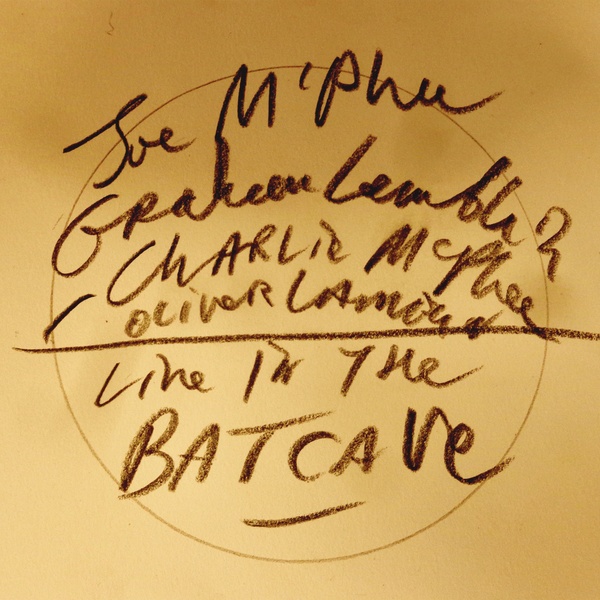 Joe M'Phee
Graham Lambkin
CHARLIE McPhee
OLIVER LAMBKIN
Live IN THe
BATCAVe